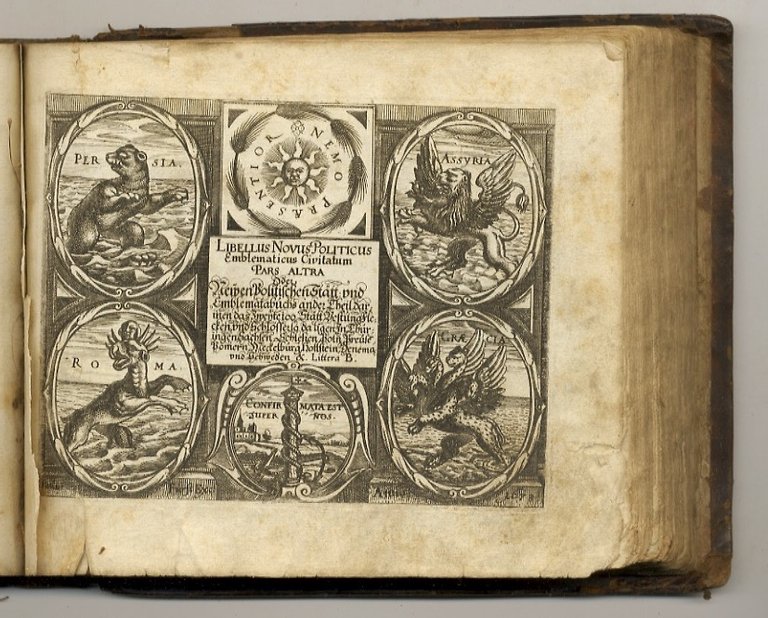 PERSIA
NEMO PRÆSENTIOR
ASSYRIA
LIBELLUS NOVUS POLITICUS
Emblematicus Civitatum
PARS ALTRA
Oder
Newen Politischen Stätt und
Emblematabuchs ander Theil dar
innen das Zweyte 100 Stätt Vestung Fle
cken und Schlösser so da ligen In Thür
ingen Sachsen, Schlesien
Pomern Meckelburg Hollstein Denema
und Schweden &. Littera B.
ROMA.
GRÆCIA
CONFIRMATA EST
SUPER NOS.